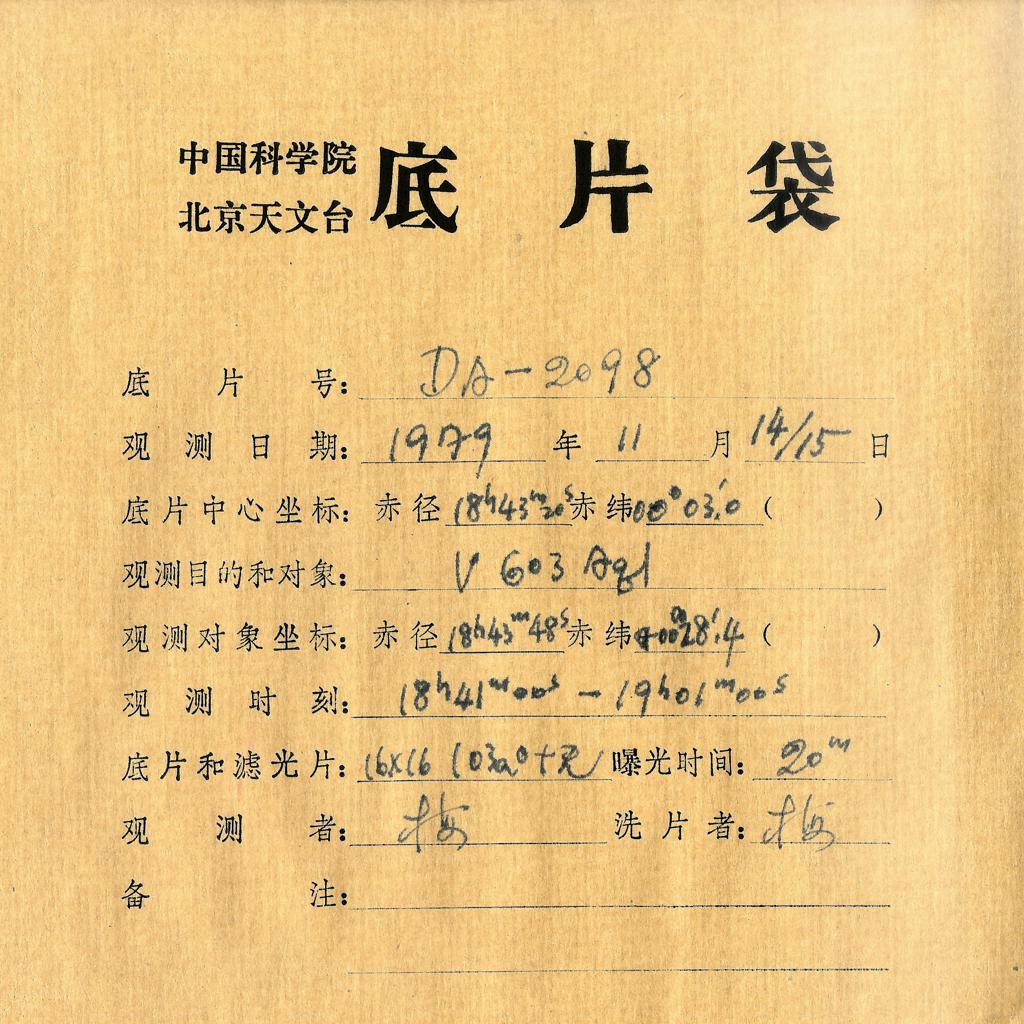 中国科学院
北京天文台
底片袋
底片号: DA-2098
观测日期: 1979年11月14/15日
底片中心坐标: 赤径18h43m20s赤纬00°03′.0 ( )
观测目的和对象: V 603 Aql
观测对象坐标: 赤径18h43m48s赤纬+00°28′.4 ( )
观测时刻: 18h41m00s-19h01m00s
底片和滤光片: 16x16 103aO+无 曝光时间: 20m
观测者: 梅 洗片者: 梅
备注: